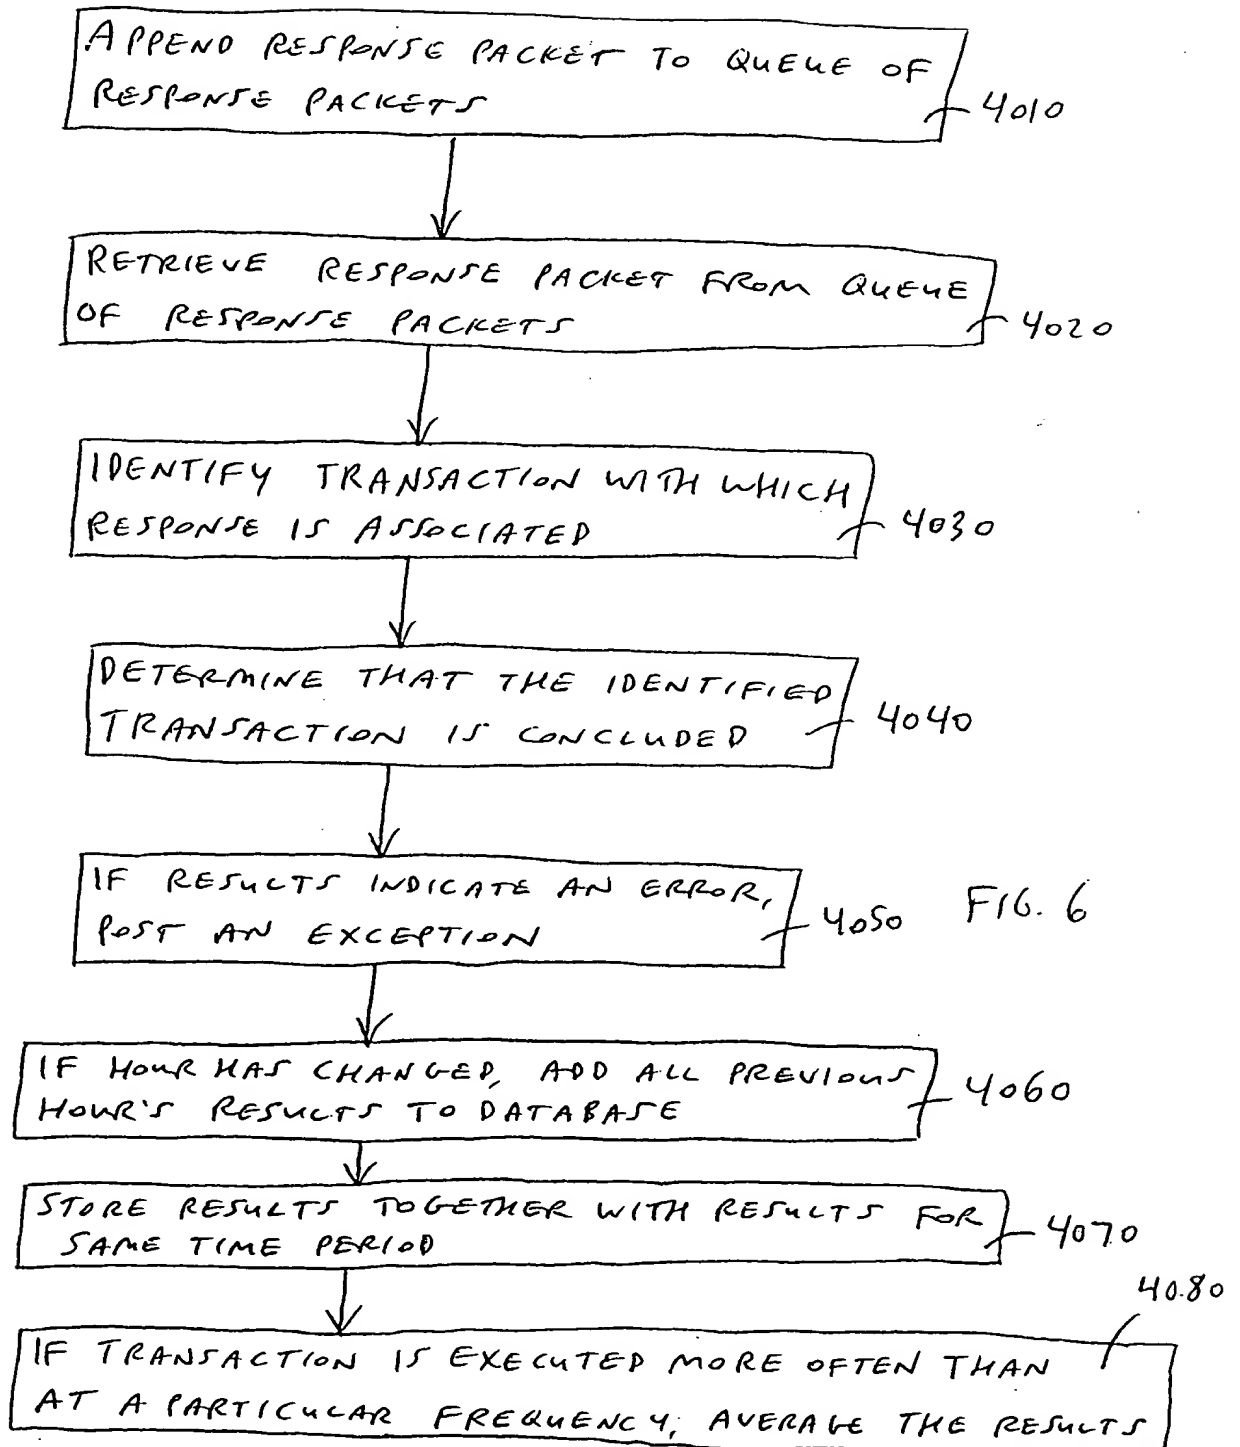 APPEND RESPONSE PACKET TO QUEUE OF
RESPONSE PACKETS
4010
RETRIEVE RESPONSE PACKET FROM QUEUE
OF RESPONSE PACKETS
4020
IDENTIFY TRANSACTION WITH WHICH
RESPONSE IS ASSOCIATED
4030
DETERMINE THAT THE IDENTIFIED
TRANSACTION IS CONCLUDED
4040
IF RESULTS INDICATE AN ERROR,
POST AN EXCEPTION
4050
FIG. 6
IF HOUR HAS CHANGED, ADD ALL PREVIOUS
HOUR'S RESULTS TO DATABASE
4060
STORE RESULTS TOGETHER WITH RESULTS FOR
SAME TIME PERIOD
4070
4080
IF TRANSACTION IS EXECUTED MORE OFTEN THAN
AT A PARTICULAR FREQUENCY, AVERAGE THE RESULTS